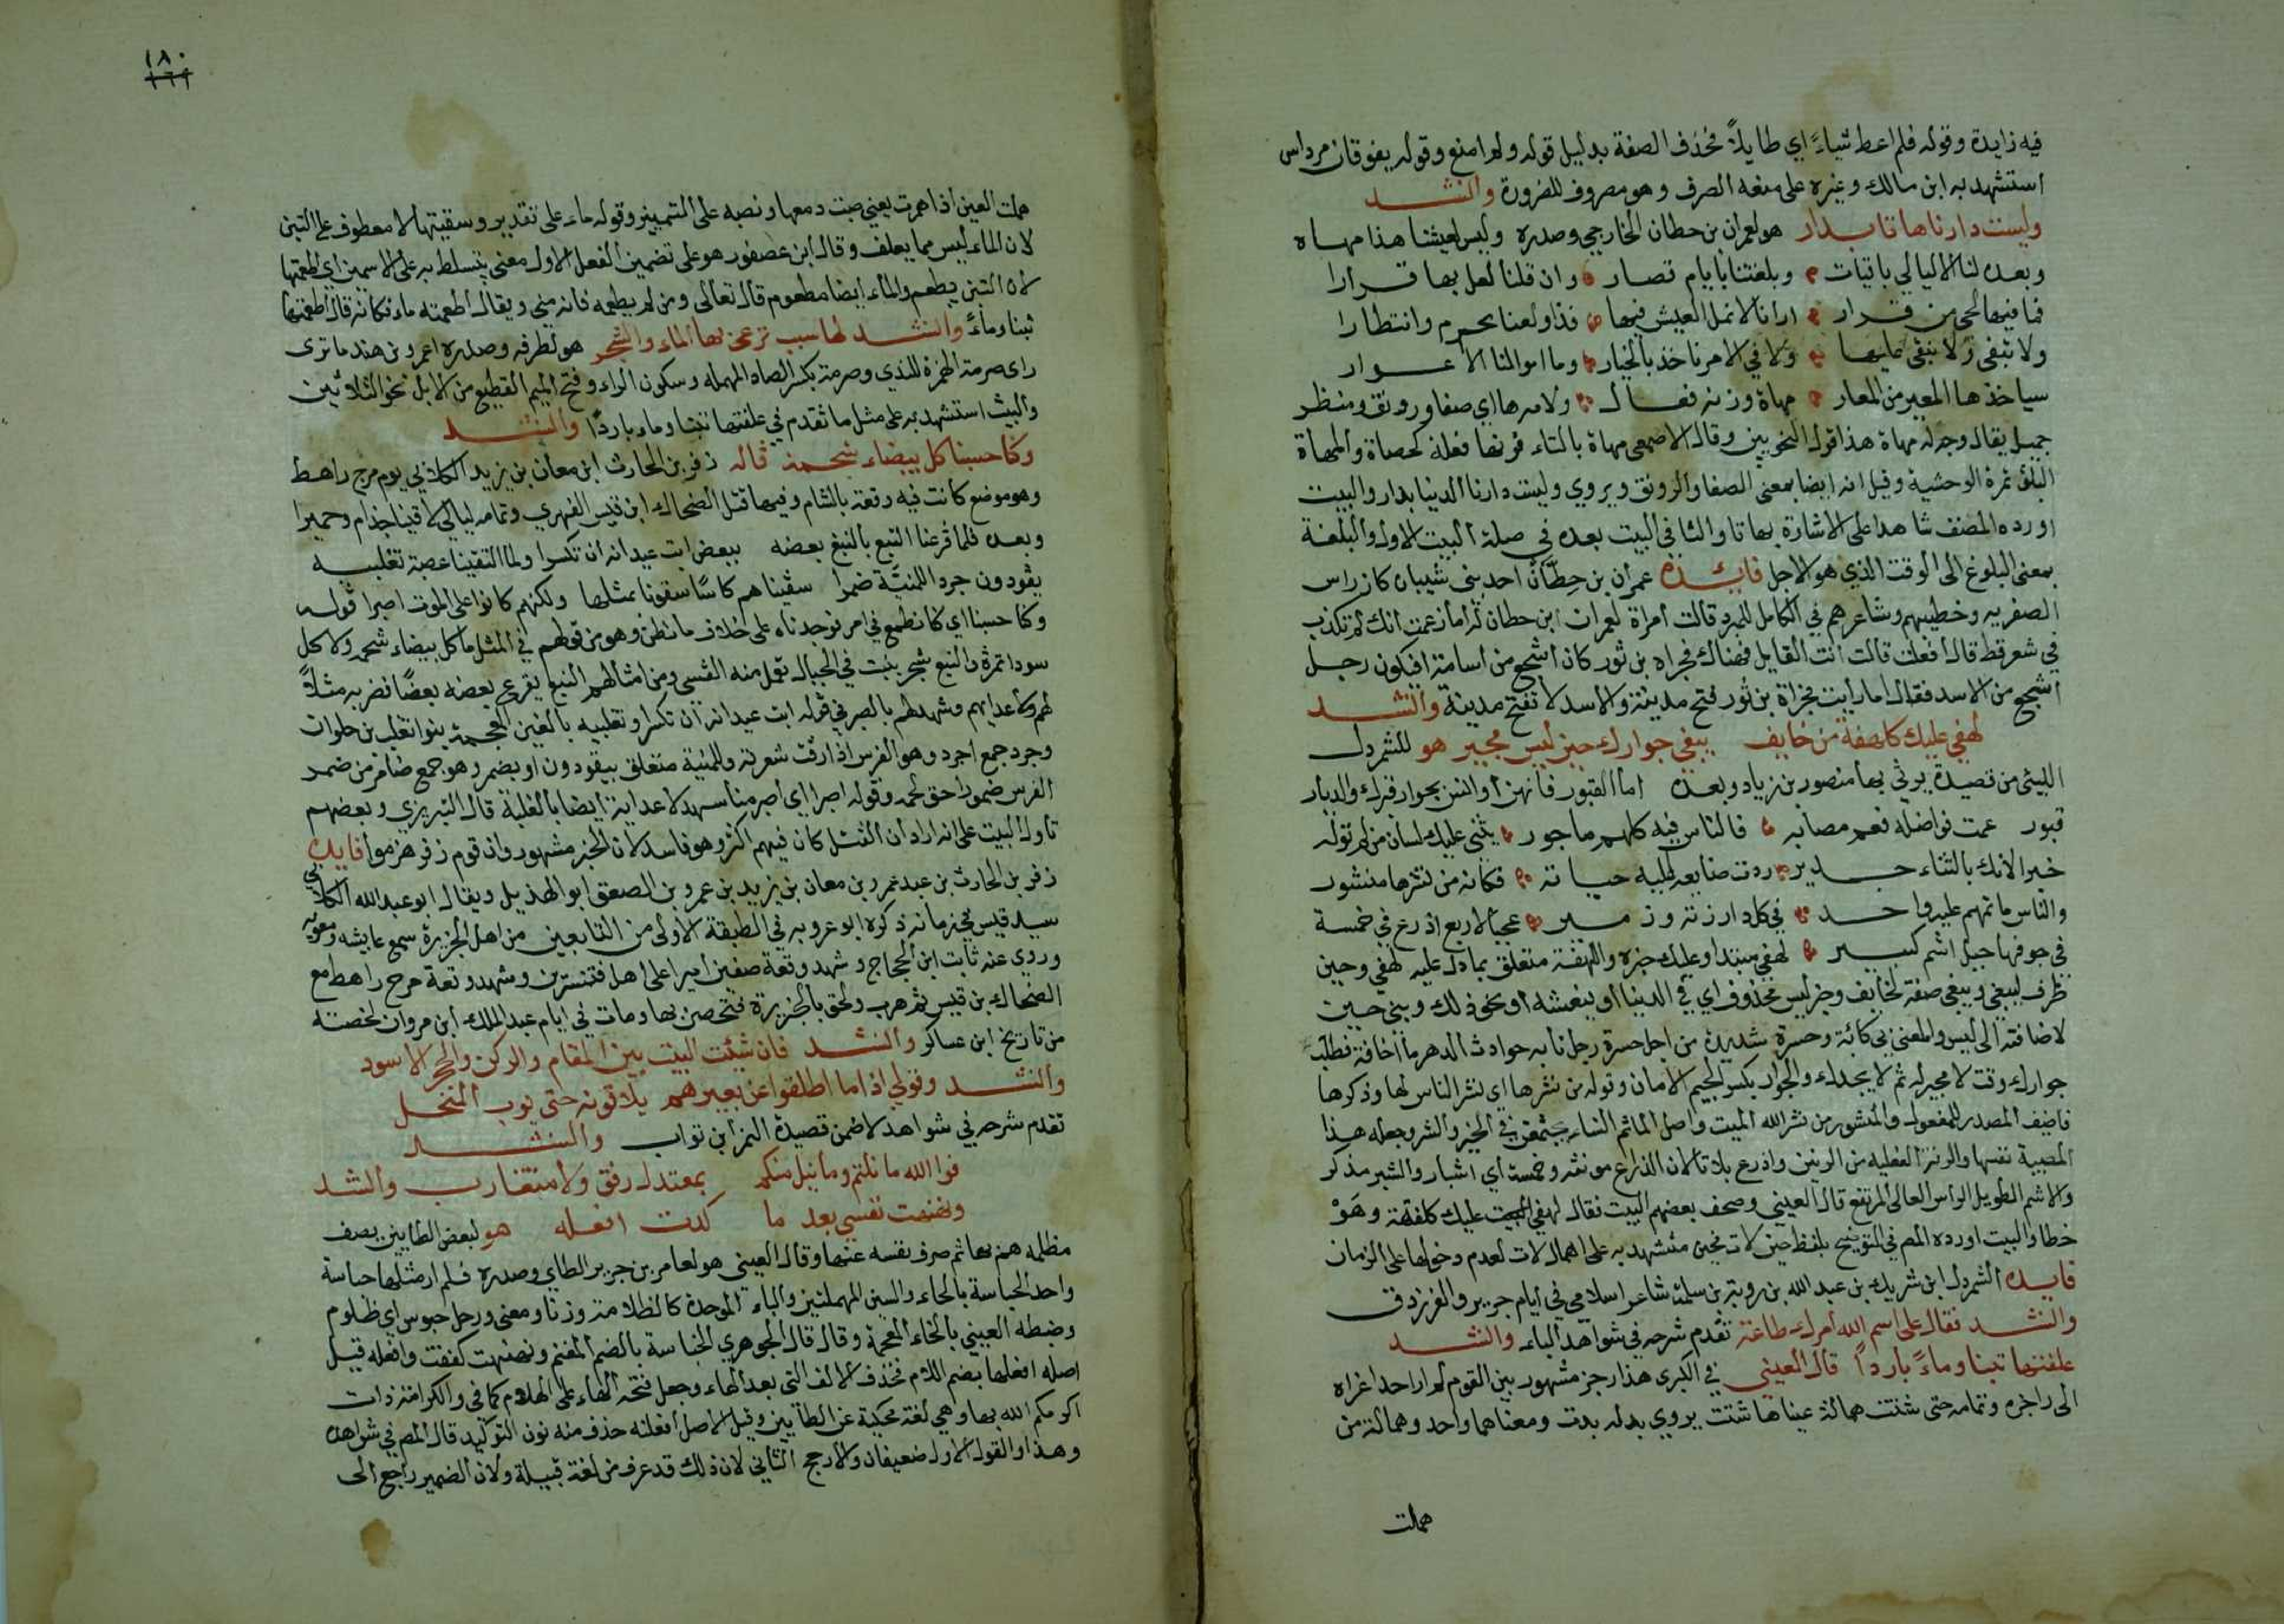 فيه زايدة وقوله فلم اعط شياءً اي طايلاً فحذف الصفة بدليل قوله ولم امنع وقوله يفوقان مرداس
استشهد به ابن مالك وغيره على منعه الصرف وهو مصروف للضرورة وانشد
وليست دارنا هاتا بدار هو لعمران بن حطان الخارجي وصدره وليس لعيشنا هذا مهاه
وبعده لنا الا ليالي باقيات وبلغتنا بايام قصار وان قلنا لعل بها قرارا
فما فيها لحي من قرار ارانا لا نمل العيش فيها واولعنا بحرم وانتظارا
ولا تبقى ولا نبقى عليها ولا في الامر ناخذ بالخيار وما اموالنا الا عوار
سياخذها المعير من المعار مهاة وزنه فعال ولامه هااي صفا ورونق ومنظر
جميل يقال وجه له مهاة هذا قول النحويين وقال الاصمعي مهاة بالتاء فعله كحصاة والمهاة
البلق ثمرة الوحشية وقيل انه ايضا بمعنى الصفا والرونق ويروي وليست دارنا الدنيا بدار والبيت
اورده المصنف شاهدا على الاشارة بهاتا والثا في البيت بعده في صلة البيت الاول والبلغة
بمعنى البلوغ الى الوقت الذي هو الاجل فايدة عمران بن حِطّان احد بني شيبان كان راس
الصفريه وخطيبهم وشاعرهم في الكامل للمبرد قالت امراة لعمران ابن حطان له اما زعمت انك لم تكذب
في شعر قط قال افعلت قالت انت القايل فهناك مجزاه بن ثور كان اشجع من اسامة افيكون رجل
اشجع من الاسد فقال اما رايت مجزاة بن ثور فتح مدينة والاسد لا تفتح مدينة وانشد
لهفي عليك كلهفة من خايف يبغي جوارك حين ليس مجير هو للشمردل
الليثي من قصيدة يرثي بها منصور بن زياد وبعده اما القبور فانهن اوانس بجوار قبرك والديار
قبور عمت فواضله فعم مصابه فالناس فيه كلهم ماجور يثني عليك لسان من لم توله
خيرا لانك بالثناء جدير ردت صنايعه اليه حياته فكانه من نشرها منشور
والناس ماتمهم عليه واحد في كل دار رنة وزفير عجبا لاربع اذرع في خمسة
في جوفها جبل اشم كبير لهفي مبتدا وعليك خبره واللهفة متعلق بما دل عليه لهفي وحين
ظرف ليبغي ويبغي صفة لخايف وخبر ليس محذوف اي في الدنيا او ينعشه او نحو ذلك وبني حين
لاضافته الى ليس والمعنى بي كآبة وحسرة شديدة من اجل حسرة رجل نابه حوادث الدهر ما اخافه فطلب
جوارك وقت لا مجير له ثم لا يجداء والجوار بكسر الجيم الامان وقوله من نشرها اي نشر الناس لها وذكرها
فاضيف المصدر للمفعول والمنشور من نشر الله الميت واصل الماتم النساء يجتمعن في الخير والشر وجعله هنا
المصيبة نفسها والرنة الفعليه من الرنين واذرع بلا تا لان الذراع مونثه وخمسة اي اشبار والشبر مذكر
والاشم الطويل الراس العالي المرتفع قال العيني وصحف بعضهم البيت فقال لهفي عليك كلهفة وهو
خطا والبيت اورده المص في التوضيح بلفظ حين لات مجير مستشهد به على اهمال لات لعدم دخولها على الزمان
فايده الشمردل ابن شريك بن عبد الله بن روبة بن سلمة شاعر اسلامي في ايام جرير والفرزدق
وانشد فقال على اسم الله امرك طاعة تقدم شرحه في شواهد الباء وانشد
علفتها تبنا وماءً بارداً قال العيني في الكبرى هذا رجز مشهور بين القوم لم ار احدا عزاه
الى راجزه وتمامه حتى شتت همالة عيناها شتت يروي بدله بدت ومعناها واحد وهمالة من
هملت
١٨٠
١٦٩
هملت العين اذا همرت يعني صبت دمعها ونصبه على التمييز وقوله ماء على تقدير وسقيتها لا معطوف على التبن
لان الماء ليس مما يعلف وقال ابن عصفور هو على تضمين الفعل الاول معنى يتسلط به على الاسمين اي اطعمتها
لان التبن يطعم والماء ايضا مطعوم قال تعالى ومن لم يطعمه فانه مني ويقال اطعمته ماء فكانه قال اطعمتها
تبنا وماءً وانشد لها سبب ترعى بها الماء والشجر هو لطرفه وصدره اعمرو بن هند ما ترى
راى صرمة الهمزة للندي وصرمة بكسر الصاد المهمله وسكون الراء وفتح الميم القطيع من الابل نحو الثلاثين
والبيت استشهد به على مثل ما تقدم في علفتها تبنا وماء باردًا وانشد
وكنا حسبنا كل بيضاء شحمة قاله زفر بن الحارث ابن معان بن يزيد الكلابي يوم مرج راهط
وهو موضع كانت فيه وقعة بالشام وفيها قتل الضحاك ابن قيس الفهري وتمامه ليالي لاقينا جذام وحميرا
وبعده فلما قرعنا النبع بالنبع بعضه ببعض ابت عيدانه ان تكسرا ولما لقينا عصبة تغلبيه
يقودون جردا للمنيّة ضمرا سقيناهم كاسًا سقونا بمثلها ولكنهم كانوا على الموت اصبرا قوله
وكنا حسبنا اي كنا نطمع في امر فوجدناه على خلاف ما نظن وهو من قولهم في المثل ما كل بيضاء شحمه ولا كل
سودا تمرة والنبع شجر ينبت في الجبال تعمل منه القسي ومن امثالهم النبع يقرع بعضه بعضًا فضربه مثلاً
لهم ولاعدايهم وشهد لهم بالصبر في قوله ابت عيدانه ان تكسرا وتغلبيه بالغين المعجمة بنوا تغلب بن حلوان
وجرد جمع اجرد وهو الفرس اذا رقت شعرته وللمنية متعلق بيقودون او بضمر وهو جمع ضامر من ضمر
الفرس ضمورا خف لحمه وقوله اصبرا اي اصبر منا شهد لاعدايه ايضا بالغلبة قال التبريزي وبعضهم
تاول البيت على انه اراد ان القتل كان فيهم اكثر وهو فاسد لان الخبر مشهور وان قوم زفر هزموا فايده
زفر بن الحارث بن عبد عمرو بن معان بن يزيد بن عمرو بن الصعق ابو الهذيل ويقال ابو عبد الله الكلابي
سيد قيس في زمانه ذكره ابو عروبه في الطبقة الاولى من التابعين من اهل الجزيرة سمع عايشه ومعويه
وروي عنه ثابت ابن الحجاج وشهد وقعة صفين اميرا على اهل قنسرين وشهد وقعة مرج راهط مع
الضحاك بن قيس ثم هرب ولحق بالجزيرة فتحصن بها ومات في ايام عبد الملك ابن مروان لخصته
من تاريخ ابن عساكر وانشد فان شئت البيت بين المقام والركن والحجر الاسود
وانشد وقولي اذا ما اطلقوا عن بعيرهم يلاقونه حتى يوب المنخل
تقدم شرحه في شواهد لا ضمن قصيدة النمر ابن تواب وانشد
فوا الله ما نلتم وما نيل منكم بمعتدل وفق ولا متقارب وانشد
ونهنهت نفسي بعد ما كدت افعله هو لبعض الطايين يصف
مظلمه هم بها ثم صرف نفسه عنها وقال العيني هو لعامر بن جرير الطاي وصدره فلم ار مثلها حباسة
واحد الحباسة بالحاء والسين المهملتين والباء الموحدة كالظلامة وزنا ومعنى ورجل حبوس اي ظلوم
وضبطه العيني بالخاء المعجمة وقال قال الجوهري الخباسة بالضم المغنم ونهنهت كففت وافعله قيل
اصله افعلها بضم اللام فحذف الالف التي بعد الهاء وجعل فتحة الهاء على اللام كما في والكرامة ذات
اكرمكم الله بها وهي لغة محكية عن الطايين وقيل الاصل افعلنه حذف منه نون التوكيد قال المص في شواهده
وهذا والقول الاول ضعيفان والارجح الثاني لان ذلك قد عرف من لغة قبيلة ولان الضمير راجع الى